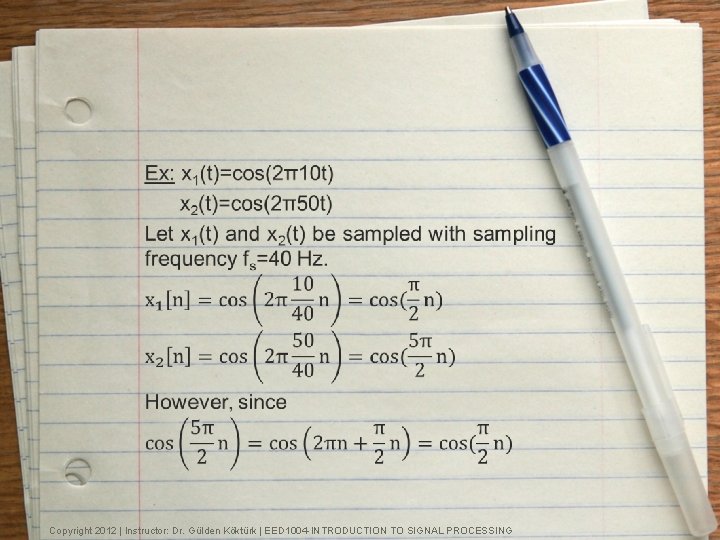 Ex: x₁(t)=cos(2π10 t)
x₂(t)=cos(2π50t)
Let x₁(t) and x₂(t) be sampled with sampling
frequency fₛ=40 Hz.
x₁[n] = cos (2π 10/40 n) = cos(π/2 n)
x₂[n] = cos (2π 50/40 n) = cos(5π/2 n)
However, since
cos (5π/2 n) = cos (2πn + π/2 n) = cos(π/2 n)
Copyright 2012 | Instructor: Dr. Gülden Köktürk | EED1004-INTRODUCTION TO SIGNAL PROCESSING